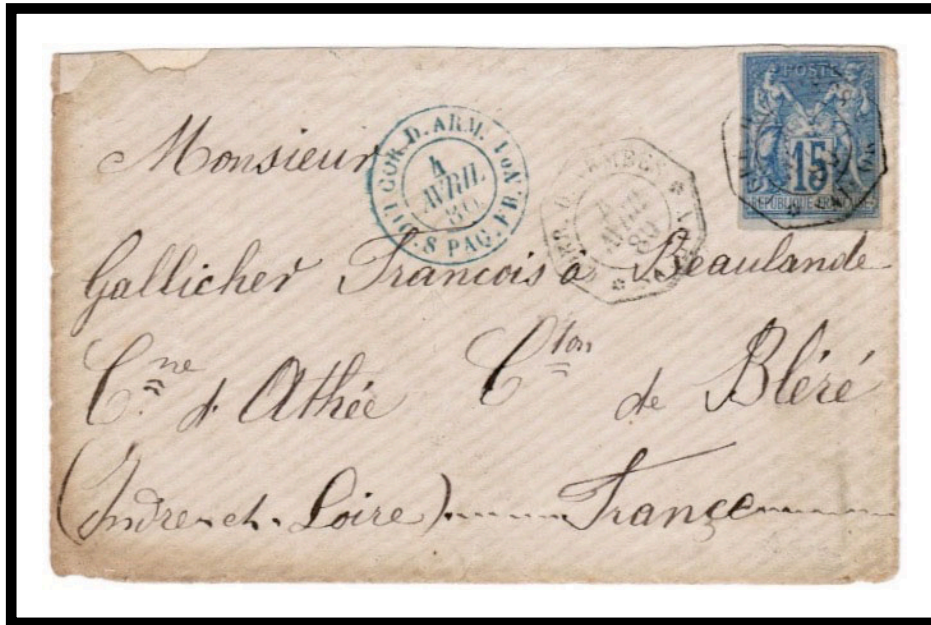 POSTES
15
REPUBLIQUE FRANCAISE
COR. D. ARM.
PAQ. FR.
4
AVRIL
80
CORR. D. ARMEES
4
AVRIL
80
Monsieur
Gallicher Francois à Beaulande
Cne d'Athée Cton de Bléré
(Indre-et-Loire) France